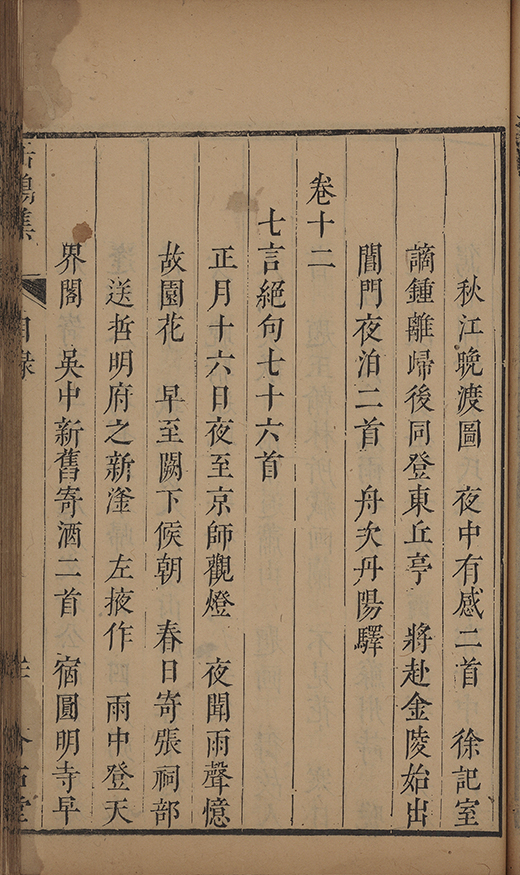 秋江晚渡圖　夜中有感二首　徐記室
謫鍾離歸後同登東丘亭　將赴金陵始出
閶門夜泊二首　舟次丹陽驛
卷十二
七言絕句七十六首
正月十六日夜至京師觀燈　夜聞雨聲憶
故園花　早至闕下候朝　春日寄張祠部
送哲明府之新滏　左掖作　雨中登天
界閣　吳中新舊寄酒二首　宿圓明寺早
目錄